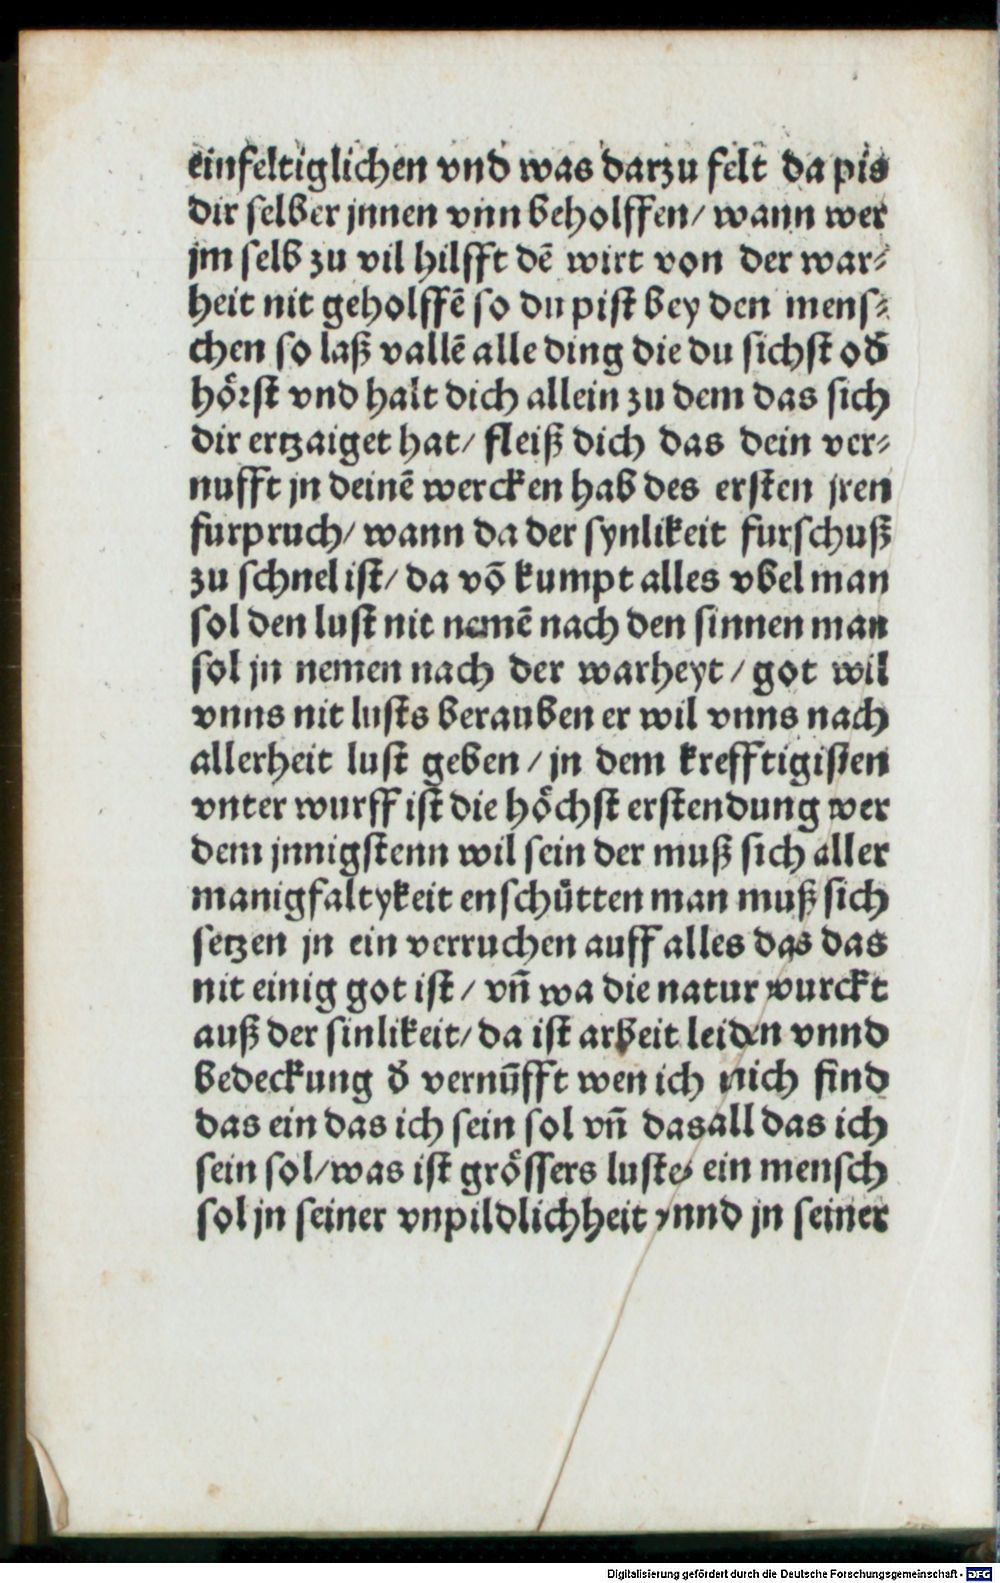 einfeltiglichen vnd was darzu felt da pis
dir selber jnnen vnn beholffen/ wann wer
jm selb zu vil hilfft dē wirt von der war⸗
heit nit geholffē so du pist bey den mens⸗
chen so laß vallē alle ding die du sichst od̄
hörst vnd halt dich allein zu dem das sich
dir ertzaiget hat/ fleiß dich das dein ver⸗
nufft jn deinē wercken hab des ersten jren
furpruch/ wann da der synlikeit furschuß
zu schnel ist/ da vō kumpt alles vbel man
sol den lust nit nemē nach den sinnen man
sol jn nemen nach der warheyt/ got wil
vnns nit lusts berauben er wil vnns nach
allerheit lust geben/ jn dem krefftigisten
vnter wurff ist die höchst erstendung wer
dem jnnigstenn wil sein der muß sich aller
manigfaltykeit enschütten man muß sich
setzen jn ein verruchen auff alles das das
nit einig got ist/ vn̄ wa die natur wurckt
auß der sinlikeit/ da ist arbeit leiden vnnd
bedeckung d̄ vernūfft wen ich mich find
das ein das ich sein sol vn̄ das all das ich
sein sol/was ist grössers lustes ein mensch
sol jn seiner vnpildlichheit vnnd jn seiner
Digitalisierung gefördert durch die Deutsche Forschungsgemeinschaft - DFG